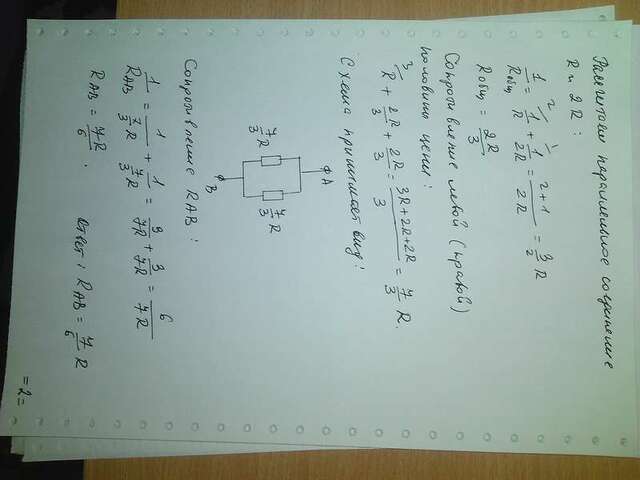 Рассчитаем параллельное соединение
R и 2R :
1/Rобщ = 1/R + 1/2R = 2+1/2R = 3/2 R
Rобщ = 2R/3.
Сопротивление левой (правой)
половины цепи:
3/ R + 2R/3 + 2R/3 = 3R+2R+2R/3 = 7/3 R.
Схема принимает вид:
A
7/3 R 7/3 R
B
Сопротивление RAB :
1/RAB = 1/7/3 R + 1/7/3 R = 3/7R + 3/7R = 6/7R
RAB = 7R/6 . Ответ: RAB = 7/6 R
=2=